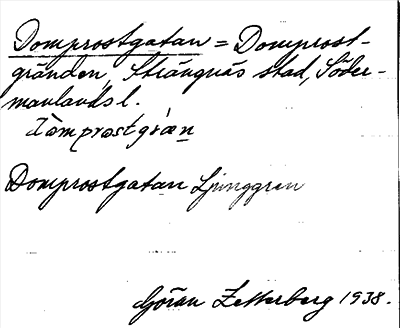 Domprostgatan = Domprost-
gränden, Strängnäs stad, Söder-
manlands l.
Domprostgatan Ljunggren
Göran Zetterberg 1938.